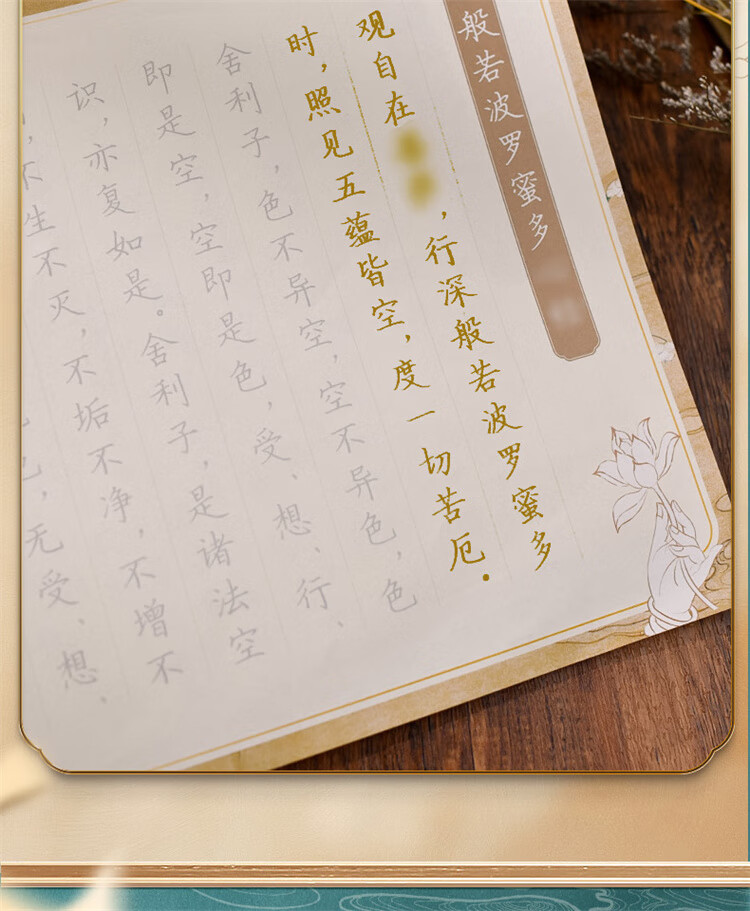 般若波罗蜜多
观自在，行深般若波罗蜜多
时，照见五蕴皆空，度一切苦厄.
舍利子，色不异空，空不异色，色
即是空，空即是色，受、想、行、
识，亦复如是。舍利子，是诸法空
，不生不灭，不垢不净，不增不
，无受、想、